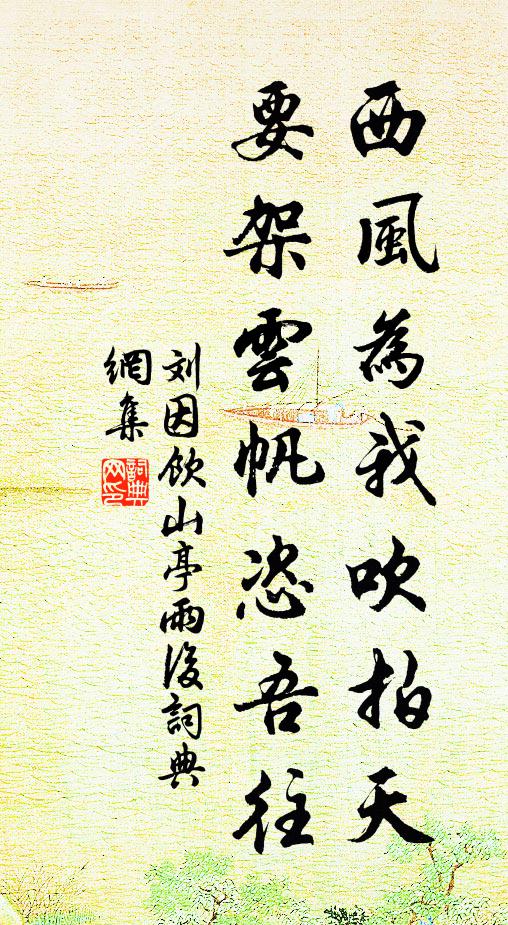 西風為我吹拍天
要架雲帆恣吾往
刘因飲山亭雨後詞典
網集
詞典網印